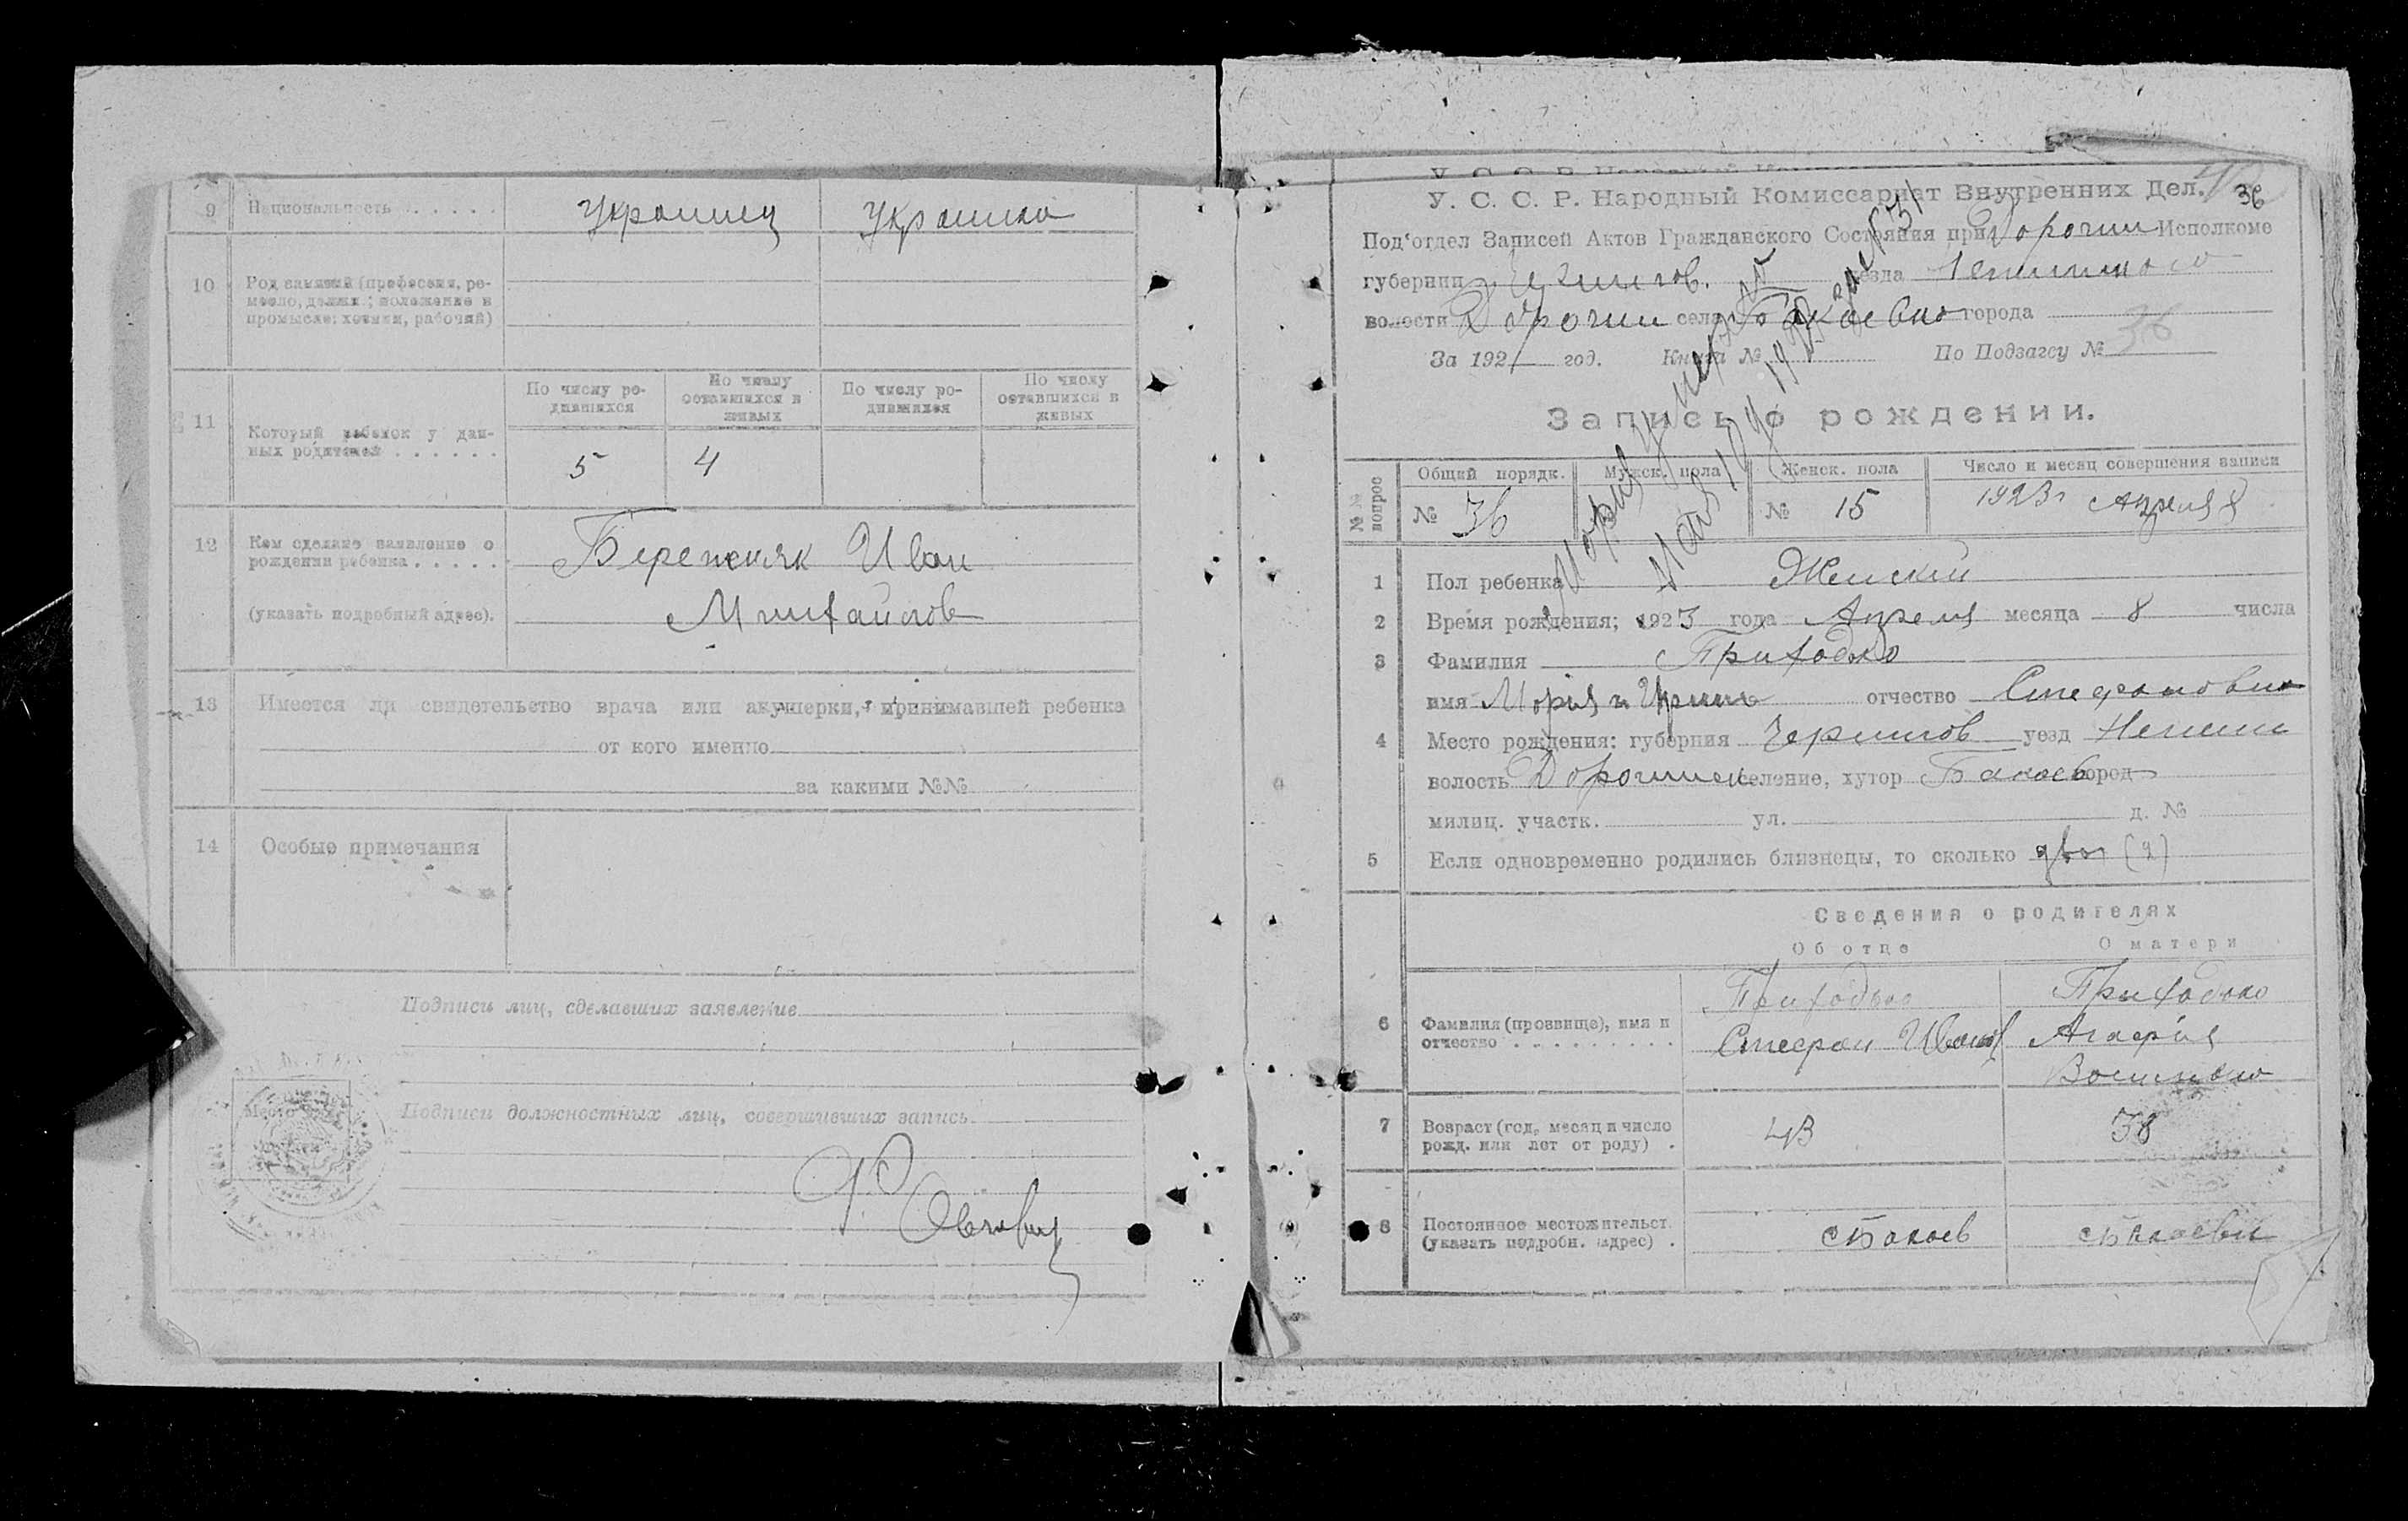 9 Национальность . . . . . Украинец Украинка
10 Род занятий (профессия, ре-
месло, должн.; положение в
промысле: хозяин, рабочий)
11 Который ребенок у дан-
ных родителей . . . . . .
По числу ро-
дившихся
По числу
оставшихся в
живых
По числу ро-
дившихся
По числу
оставшихся в
живых
5 4
12 Кем сделано заявление о
рождении ребенка . . . . .
(указать подробный адрес).
Бережняк Иван
Михайлов
13 Имеется ли свидетельство врача или акушерки, принимавшей ребенка
от кого именно
за какими №№
14 Особые примечания
Подписи лиц, сделавших заявление
Подписи должностных лиц, совершивших запись
Место
У. С. С. Р. Народный Комиссариат Внутренних Дел.
36
Под'отдел Записей Актов Гражданского Состояния при Дорогин Исполкоме
губернии Чернигов. уезда
волости Дорогин села Бакаевка города
За 192 год. Книга № По Подзагсу № 36
Запись о рождении.
№№ вопрос
Общий порядк. Мужск. пола Женск. пола Число и месяц совершения записи
№ 36 № 15 1923 г Апреля 8
Мария умерла
Мая 19 1923
1 Пол ребенка Женский
2 Время рождения; 1923 года Апреля месяца 8 числа
3 Фамилия Приходько
имя Мария и Ирина отчество Стефановна
4 Место рождения: губерния Чернигов уезд Нежин
волость Дорогинск селение, хутор Бакаев город
милиц. участк. ул. д. №
5 Если одновременно родились близнецы, то сколько двое (2)
Сведения о родителях
Об отце О матери
6 Фамилия (прозвище), имя и
отчество . . . . . . . . .
Приходько
Стефан Иванов
Приходько
Агафия
7 Возраст (год, месяц и число
рожд. или лет от роду) .
43 38
8 Постоянное местожительст.
(указать подробн. адрес) .
с Бакаев с Бакаевка